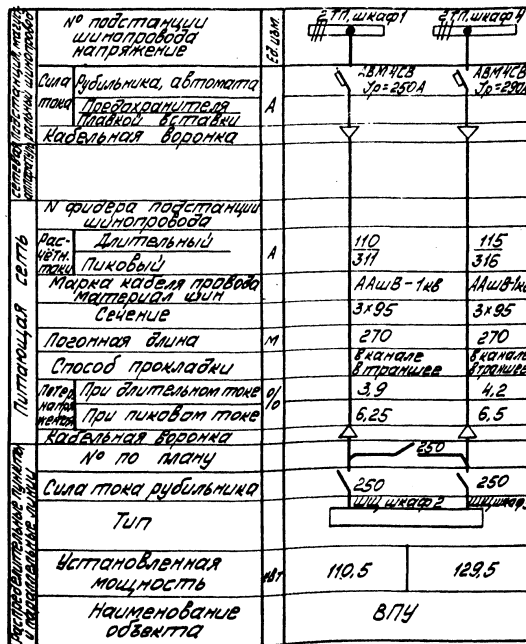 № подстанции шинопровода напряжение
Ед. изм.
2ТП, шкаф 1
2ТП, шкаф 4
Сила тока
Рубильника, автомата
Предохранителя
Плавкой вставки
А
АВМ4СВ
Jр=250А
АВМ4СВ
Jр=290А
Кабельная воронка
Питающая сеть
N фидера подстанции шинопровода
Расчётн. токи
Длительный
Пиковый
А
110
311
115
316
Марка кабеля провода
материал шин
ААшВ-1кв
ААшВ-1кв
Сечение
3х95
3х95
Погонная длина
м
270
270
Способ прокладки
в канале
в траншее
в канале
в траншее
Потер. напряжения
При длительном токе
%
3,9
4,2
При пиковом токе
6,25
6,5
Кабельная воронка
Распределительные пункты и параллельные линии
№ по плану
250
Сила тока рубильника
250
250
Тип
ШЩ шкаф 2
ШЩ шкаф
Установленная мощность
квт
110,5
129,5
Наименование объекта
ВПУ